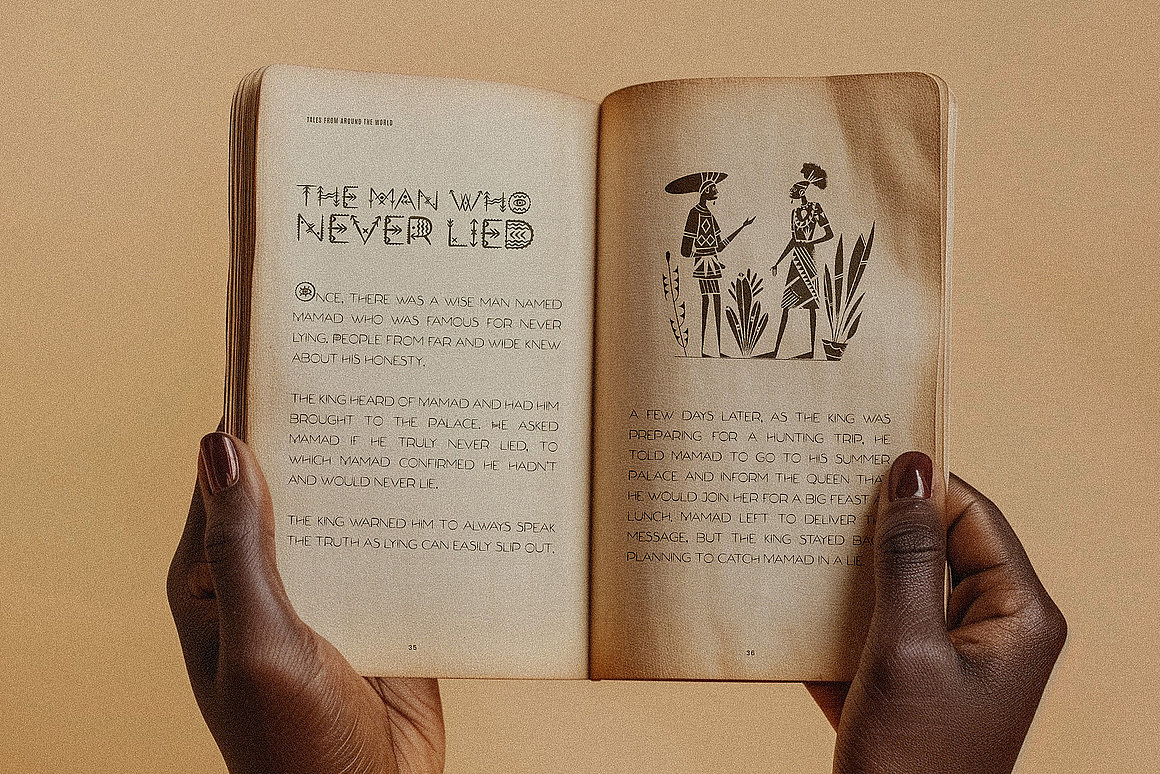 TALES FROM AROUND THE WORLD
THE MAN WHO
NEVER LIED
ONCE, THERE WAS A WISE MAN NAMED
MAMAD WHO WAS FAMOUS FOR NEVER
LYING. PEOPLE FROM FAR AND WIDE KNEW
ABOUT HIS HONESTY.
THE KING HEARD OF MAMAD AND HAD HIM
BROUGHT TO THE PALACE. HE ASKED
MAMAD IF HE TRULY NEVER LIED, TO
WHICH MAMAD CONFIRMED HE HADN'T
AND WOULD NEVER LIE.
THE KING WARNED HIM TO ALWAYS SPEAK
THE TRUTH AS LYING CAN EASILY SLIP OUT.
35
A FEW DAYS LATER, AS THE KING WAS
PREPARING FOR A HUNTING TRIP, HE
TOLD MAMAD TO GO TO HIS SUMMER
PALACE AND INFORM THE QUEEN
HE WOULD JOIN HER FOR A BIG FEAST
LUNCH. MAMAD LEFT TO DELIVER
MESSAGE, BUT THE KING STAYED
PLANNING TO CATCH MAMAD IN A
36